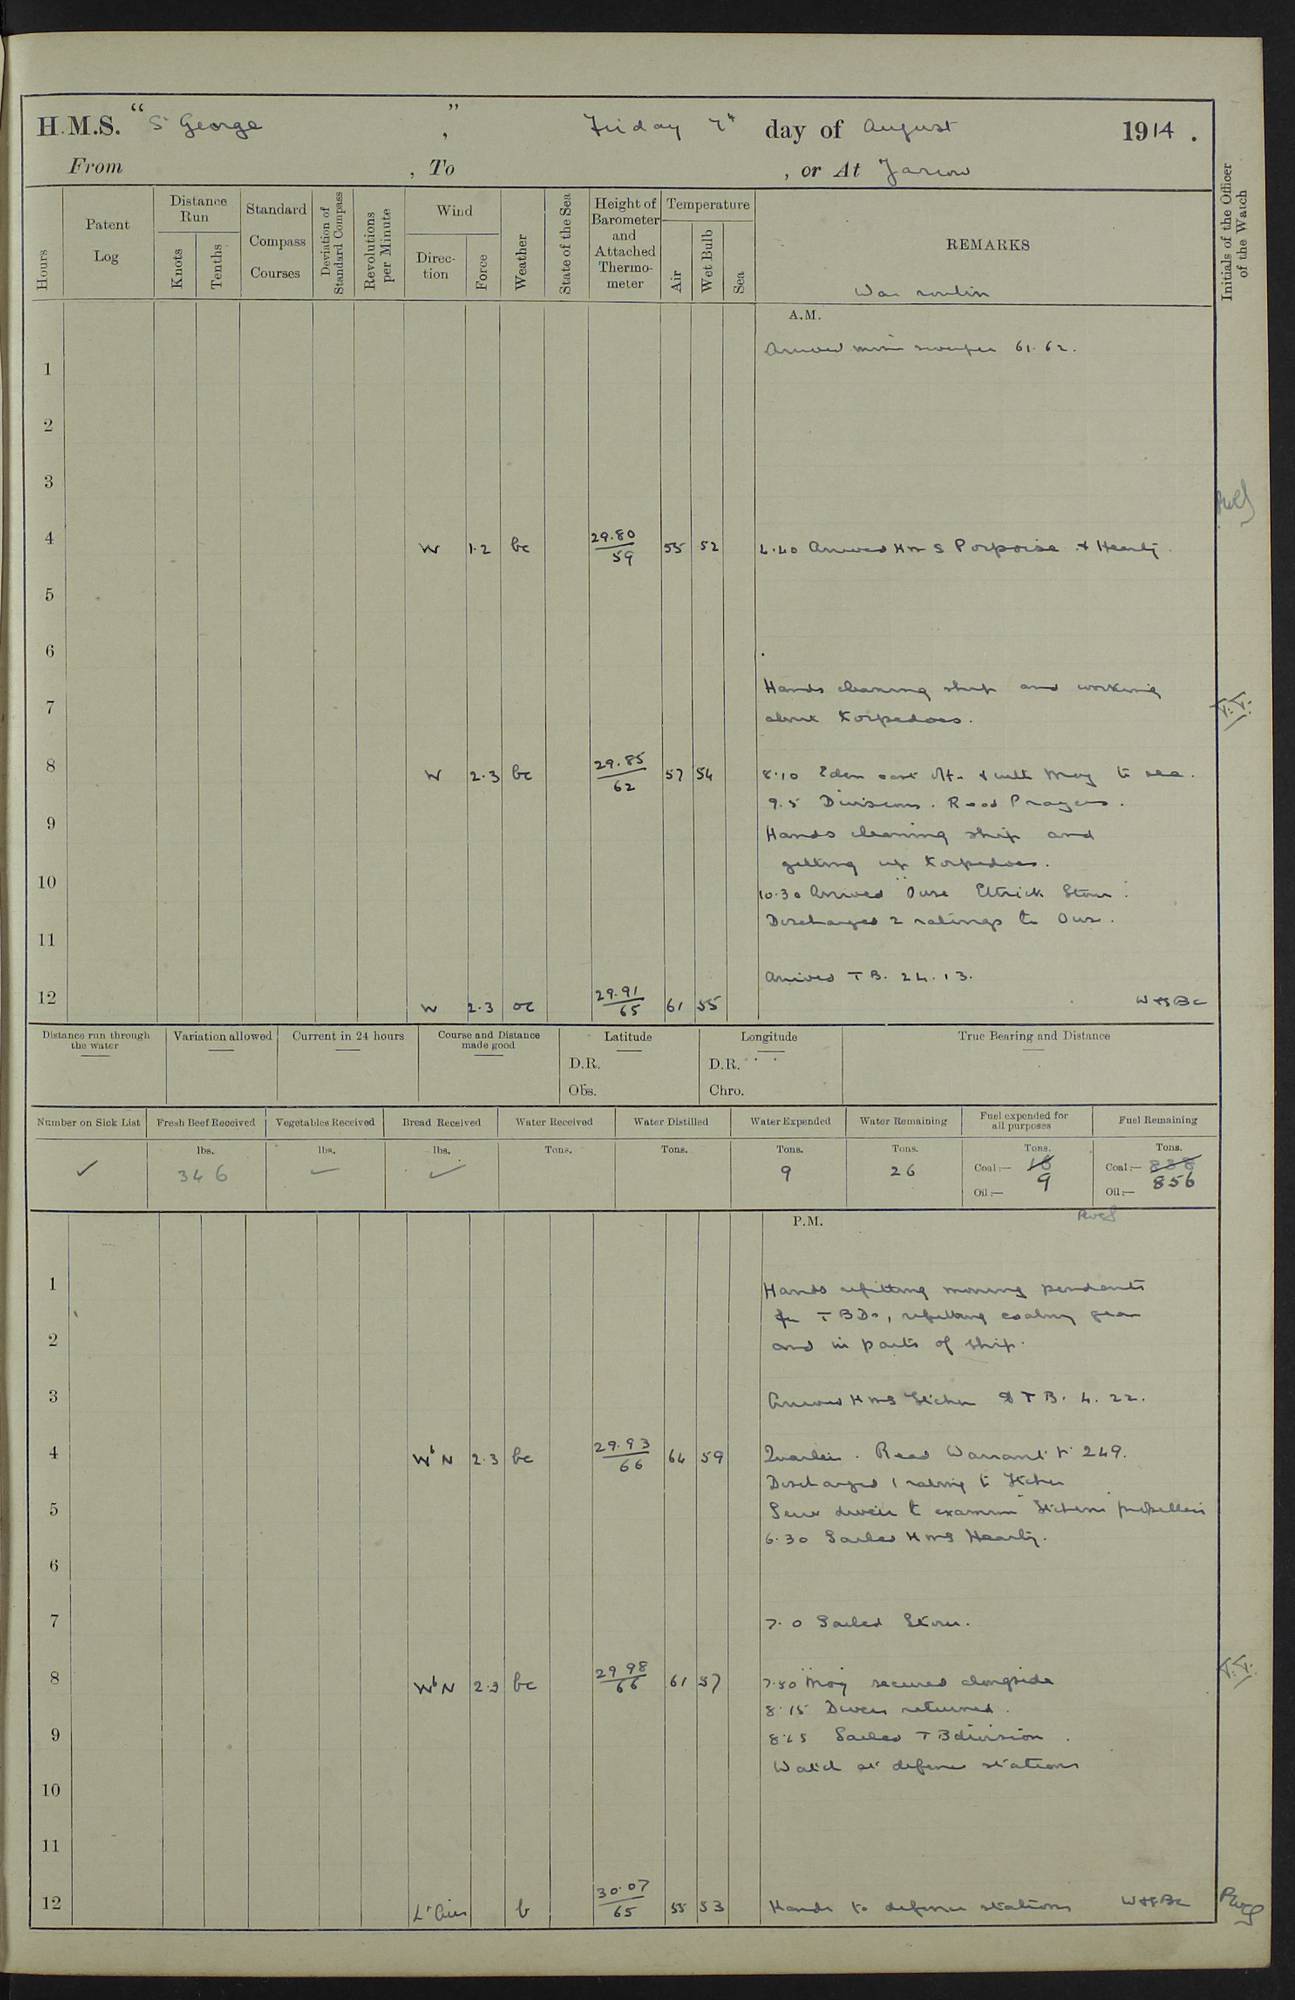 H.M.S. "St George", Friday 7th day of August 1914.
From , To , or At Jarrow
Hours
Patent Log
Distance Run
Knots
Tenths
Standard Compass Courses
Deviation of Standard Compass
Revolutions per Minute
Wind
Direction
Force
Weather
State of the Sea
Height of Barometer and Attached Thermometer
Temperature
Air
Wet Bulb
Sea
REMARKS
War routin
Initials of the Officer of the Watch
A.M.
Arrived mine sweeper 61. 62.
1
2
3
4 W 1.2 bc 29.80 59 55 52 4.40 Arrived HMS Porpoise & Hearty.
5
6
Hands cleaning ship and working
7
about torpedoes.
8 W 2.3 bc 29.85 62 57 54 8.10 Eden cast off & with May to sea.
9.5 Divisions. Read Prayers.
9
Hands cleaning ship and
getting up torpedoes.
10
10.30 Arrived "Ouse Ettrick Stour".
Discharged 2 ratings to Ouse.
11
Arrived T B. 24. 13.
12 W 2.3 oc 29.91 65 61 55
Distance run through the water
Variation allowed
Current in 24 hours
Course and Distance made good
Latitude
D.R.
Obs.
Longitude
D.R.
Chro.
True Bearing and Distance
Number on Sick List
Fresh Beef Received
Vegetables Received
Bread Received
Water Received
Water Distilled
Water Expended
Water Remaining
Fuel expended for all purposes
Fuel Remaining
lbs. lbs. lbs. Tons. Tons. Tons. Tons. Tons. Tons.
✓ 346 ✓ ✓ 9 26 Coal:— 18 9 Coal:— 838 856
Oil:— Oil:—
P.M.
1 Hands refitting mooring pendants
for TBDs, refitting coaling gear
2 and in parts of ship.
3 Arrived HMS Itchen & T B. 4. 22.
4 WbN 2.3 bc 29.93 66 64 59 Quarters. Read Warrant No 249.
Discharged 1 rating to Itchen
5 Sent divers to examine Itchens propellers
6.30 Sailed HMS Hearty.
6
7 7.0 Sailed Stour.
8 WbN 2.3 bc 29 98 66 61 57 7.50 "May secured alongside
8.15 Divers returned.
9 Sailed TB division.
Watch at defence stations
10
11
12 Lt Airs b 30.07 65 55 53 Hands to defence stations